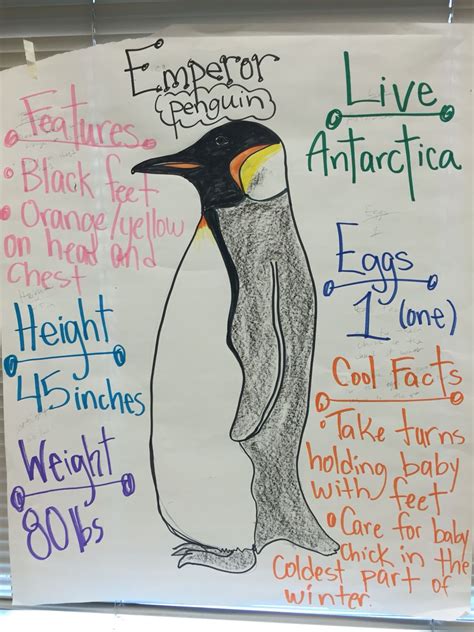 Emperor
Penguin
Features
Black feet
Orange/yellow
on head and
chest
Height
45 inches
Weight
80 lbs
Live
Antarctica
Eggs
1 (one)
Cool Facts
Take turns
holding baby
with feet
Care for baby
chick in the
coldest part of
winter.